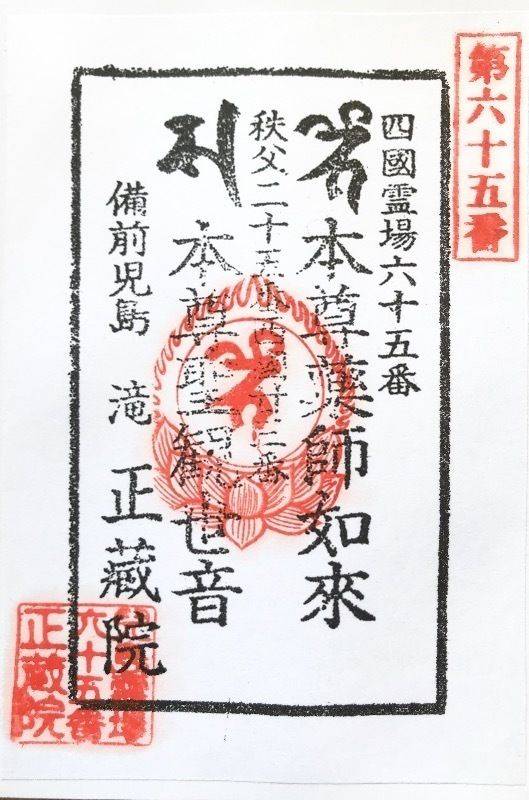 第六十五番
四國霊場六十五番
本尊藥師如來
秩父二十五 西國廿三番
本尊聖觀世音
備前児島 滝 正藏院
霊場
六十五番
正藏院